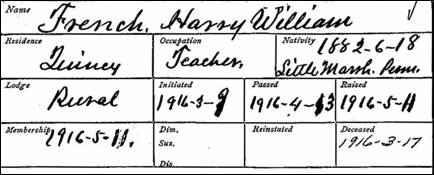 Name
French, Harry William
Residence Occupation Nativity
1882-6-18
Quincy Teacher, Little Marsh, Penn.
Lodge Initiated Passed Raised
Rural 1916-3-9 1916-4-13 1916-5-11
Membership Dim. Reinstated Deceased
1916-5-11. Sus. 1916-3-17
Dis.